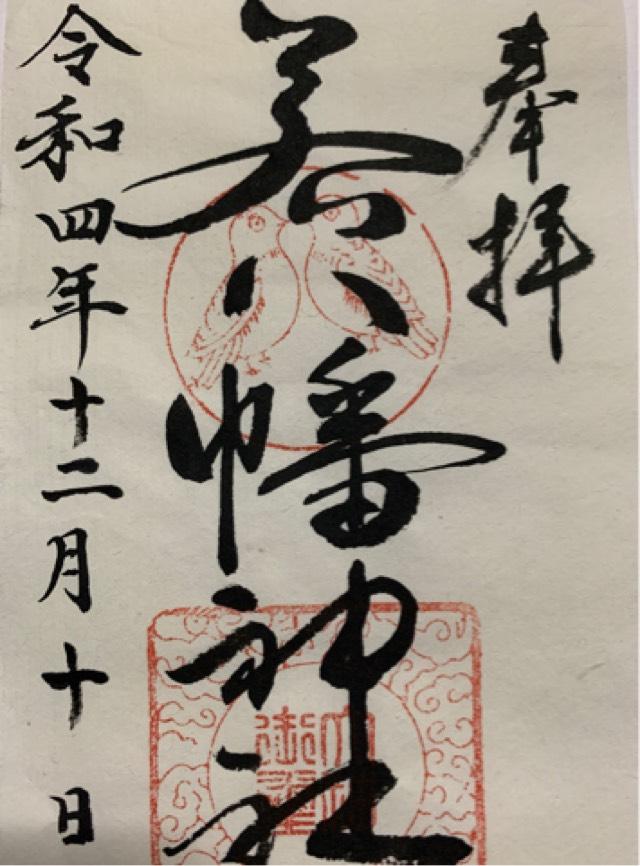 奉拝
若八幡神社
令和四年十二月十日